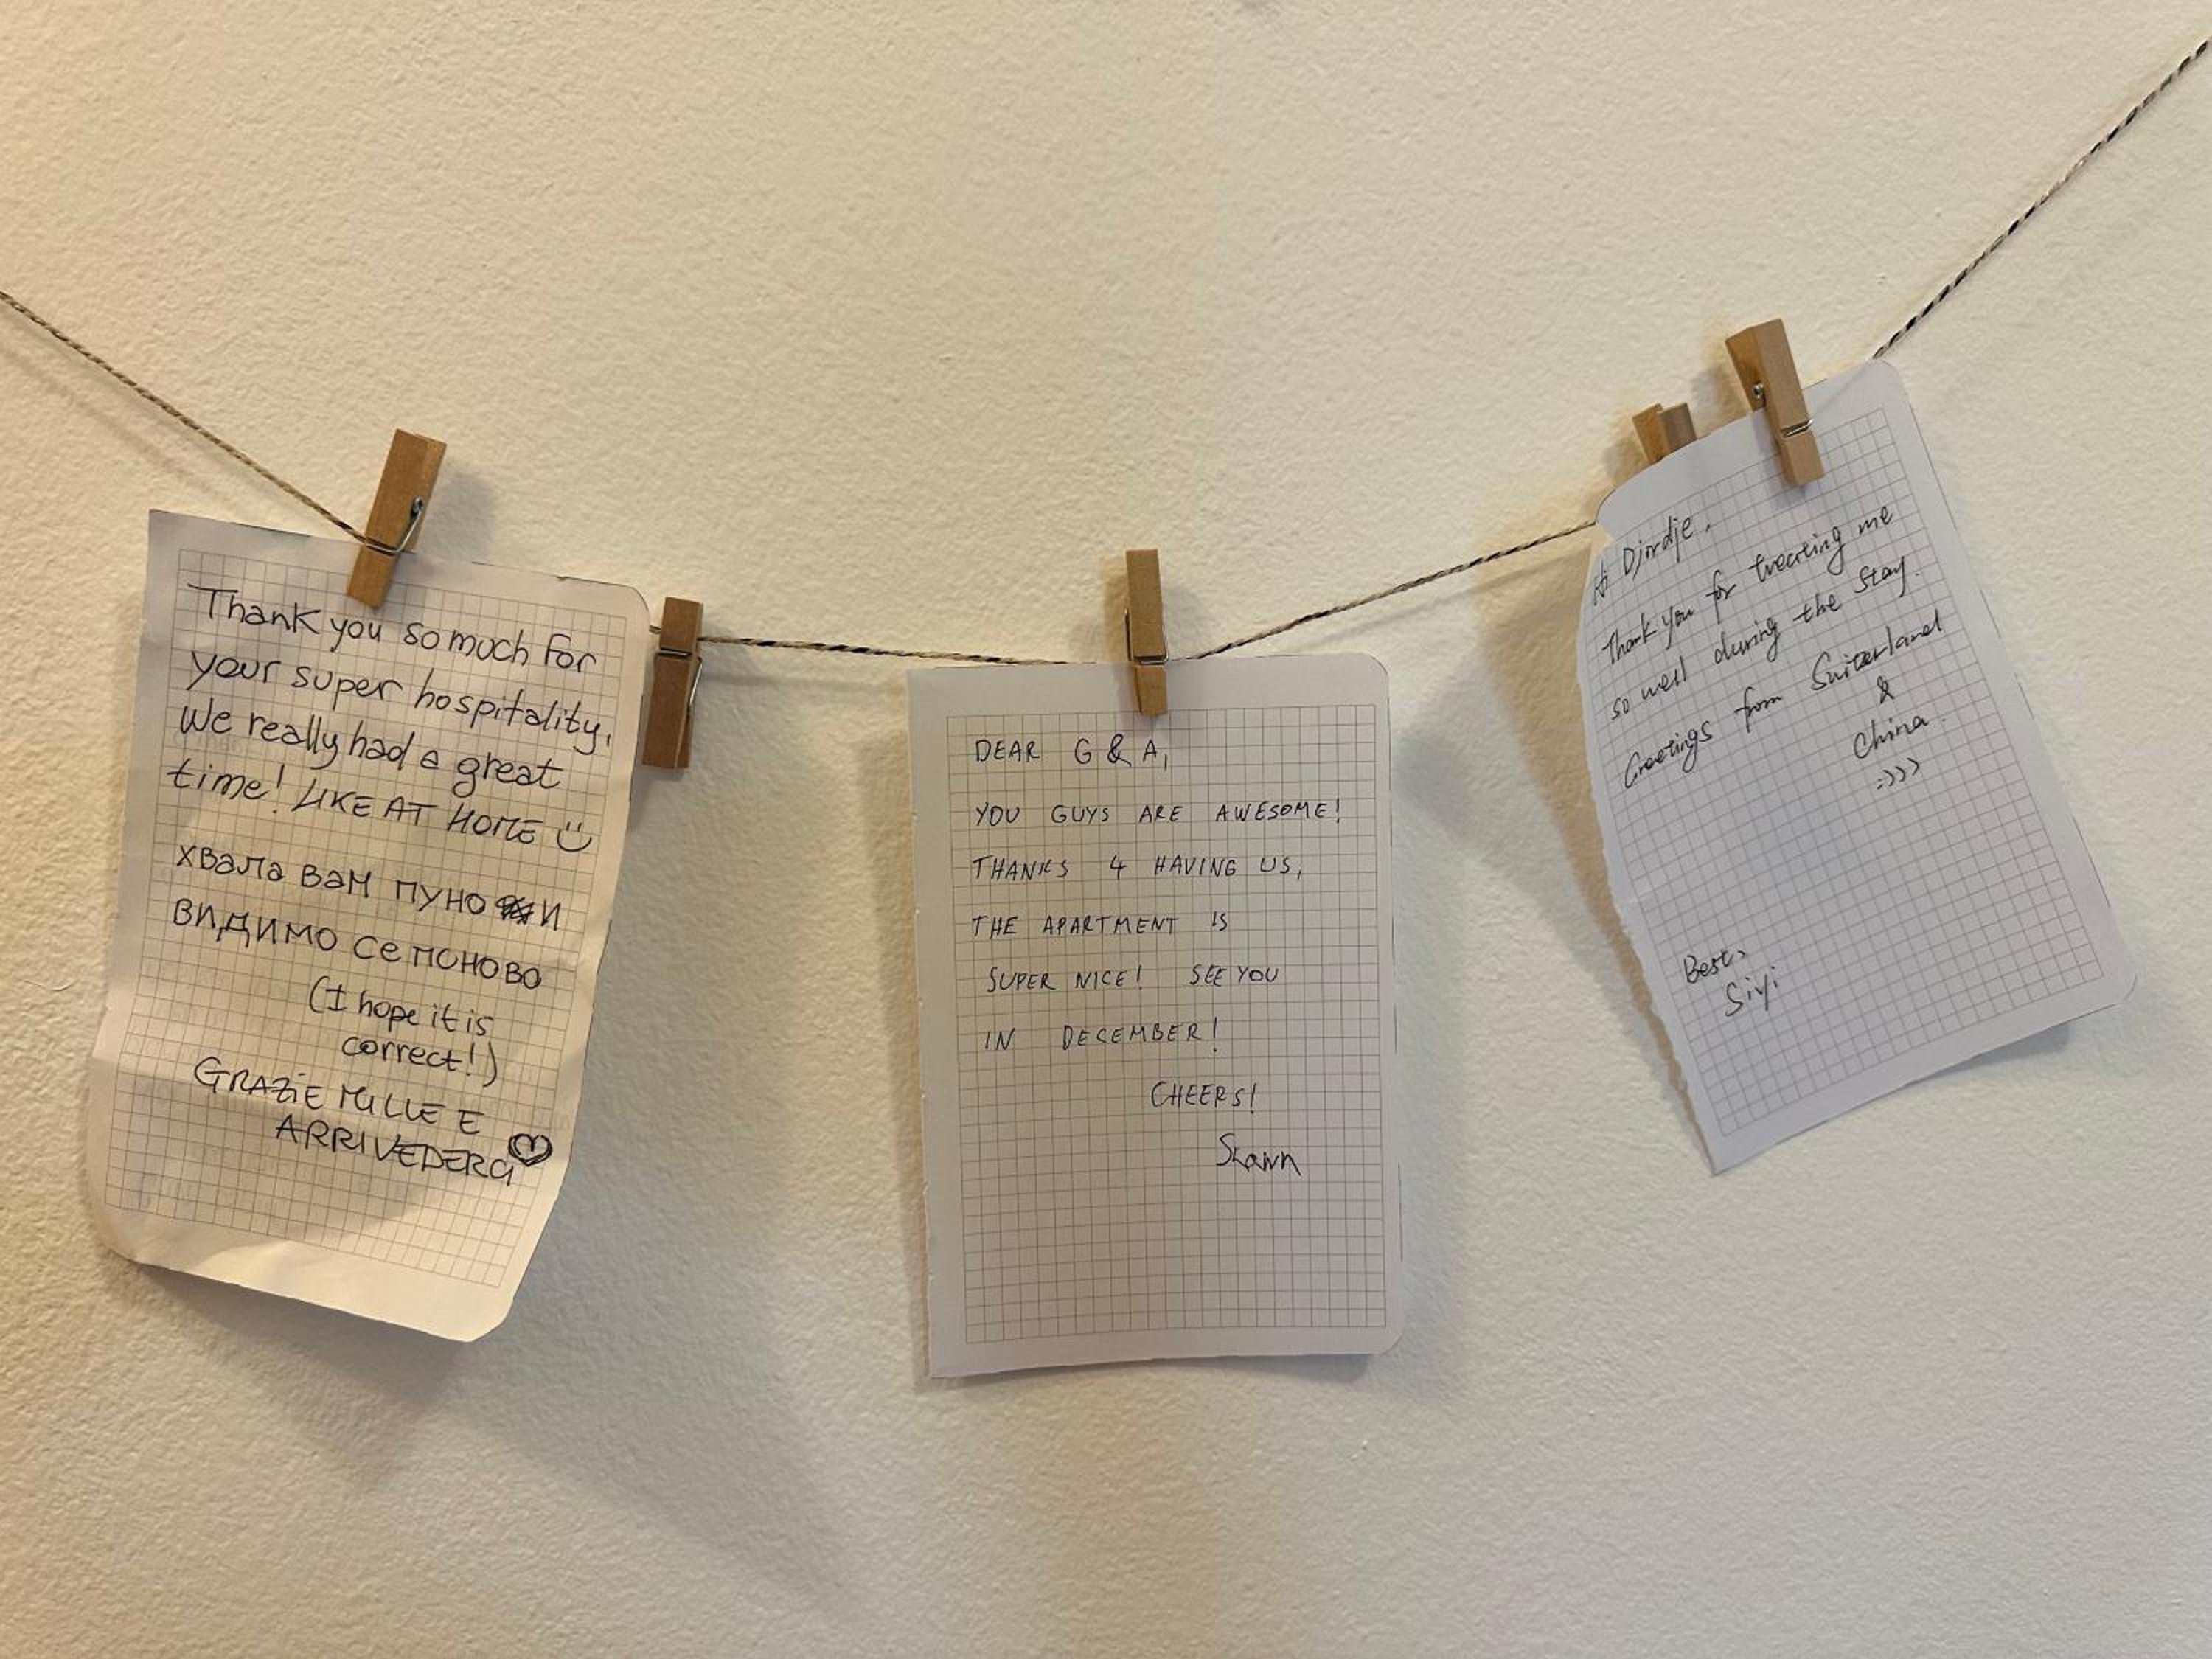 Thank you so much for
your super hospitality,
We really had a great
time! LIKE AT HOME
хвала вам пуно и
видимо се поново
(I hope it is
correct!)
GRAZIE MILLE E
ARRIVEDERCI
DEAR G & A,
YOU GUYS ARE AWESOME!
THANKS 4 HAVING US,
THE APARTMENT IS
SUPER NICE! SEE YOU
IN DECEMBER!
CHEERS!
Shawn
Hi Djordje,
Thank you for treating me
so well during the stay.
Greetings from Switerland
&
China.
:-)))
Best,
Siyi